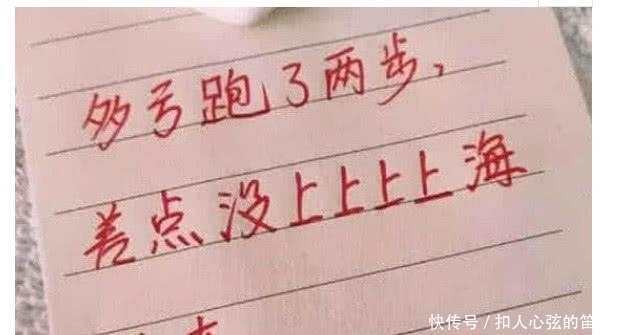 多亏跑了两步,
差点没上上上上海
快传号/扣人心弦的笛